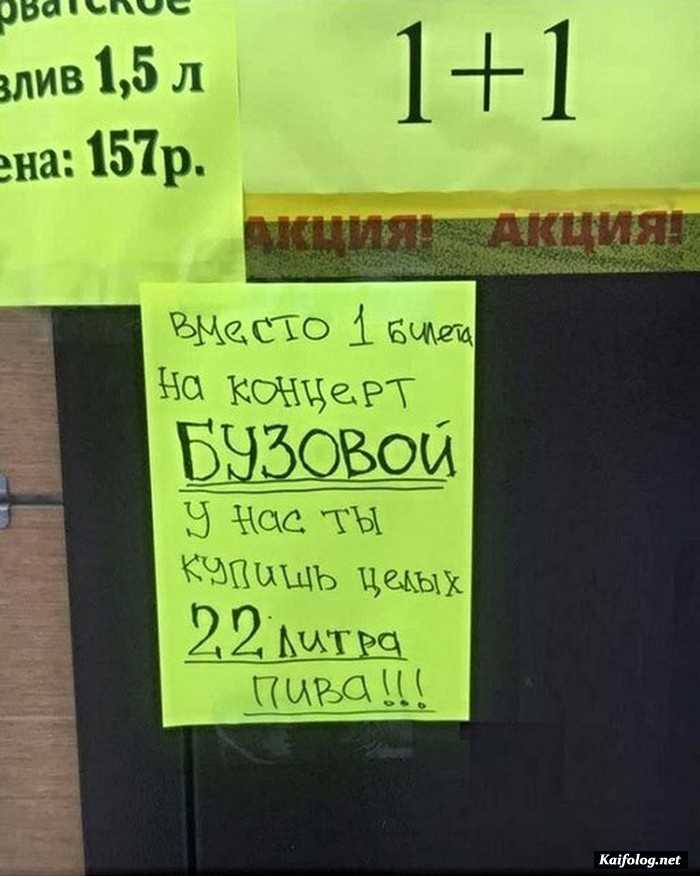 1,5 л
157р.
1+1
АКЦИЯ! АКЦИЯ!
Вместо 1 билета
на концерт
БУЗОВОЙ
у нас ты
купишь целых
22 литра
пива!!!
Kaifolog.net